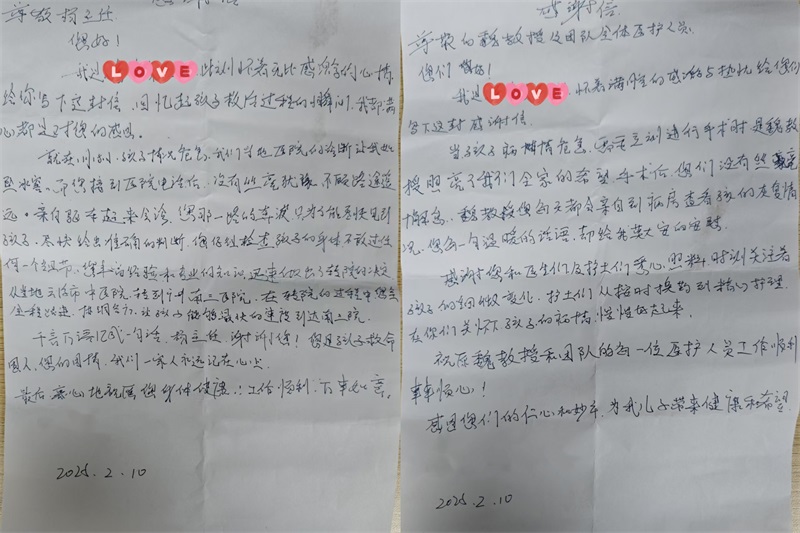 感谢信
尊敬杨主任
您好!
我是LOVE 此刻怀着无比感激的心情
给你写下这封信。回忆起孩子救治过程的瞬间,我都满
心都是对您的感恩。
就在 孩子情况危急,我们当地医院的诊断让我如
坠冰窖。而您接到医院电话后,没有丝毫犹豫 不顾路途遥
远,亲自驱车赶来会诊。您那一路的奔波只为了能尽快见到
孩子,尽快给出准确的判断。您仔细检查孩子的身体不放过任
何一个细节,您丰富的经验和专业的知识迅速做出了转院的决定
从当地 市中医院转到 第二医院。在转院的过程中您
全程 ,让孩子能够最快的速度到达 二院
千言万语汇成一句话,杨主任 谢谢你!您是孩子救命
恩人,您的恩情,我们一家人永远记在心里
最后 衷心地祝愿您身体健康!工作顺利,万事如意。
2025.2.10
感谢信
尊敬的魏教授及团队全体医护人员
您们 好!
我是LOVE 怀着满腔的感激与热忱给您们
写下这封感谢信。
当孩子 病情危急,需要立刻进行手术时是魏教
授照亮了我们全家的希望 手术后,您们没有丝毫
懈怠,魏教授您每天都会亲自到病房查看孩子的恢复情
况,您每一句温暖的话语,都给我莫大的安慰
感谢您和医生们及护士们悉心照料,时刻关注着
孩子的细微变化,护士们从按时换药到精心护理
在您们关怀下孩子的病情慢慢好起来。
祝愿魏教授和团队的每一位医护人员工作顺利
事事顺心!
感恩您们的仁心和妙手,为我儿子带来健康和希望
2025.2.10